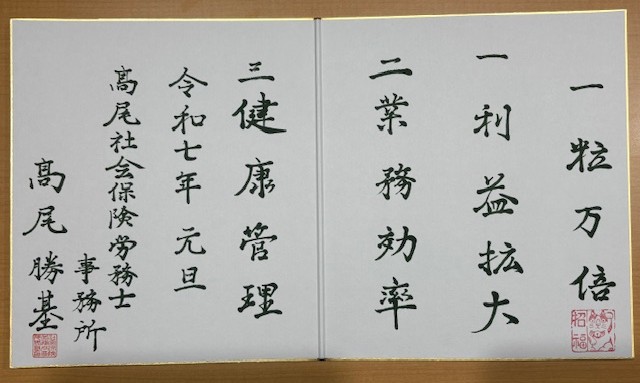 一粒万倍
一利益拡大
二業務効率
三健康管理
令和七年 元旦
髙尾社会保険労務士
事務所
髙尾勝基
招福